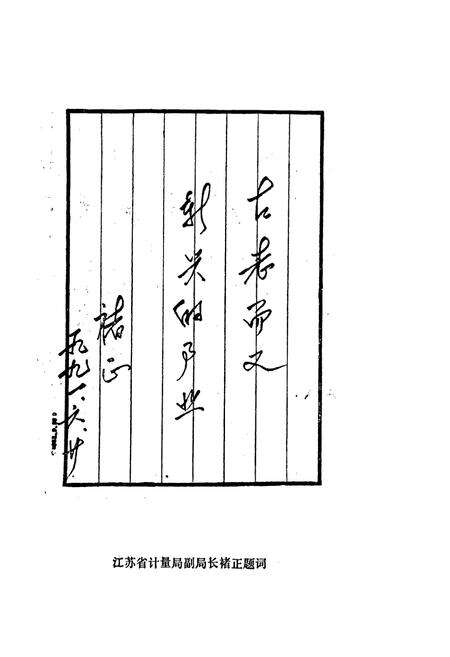 古老而又
新兴的产业
褚正
一九九一.六.廿
江苏省计量局副局长褚正题词